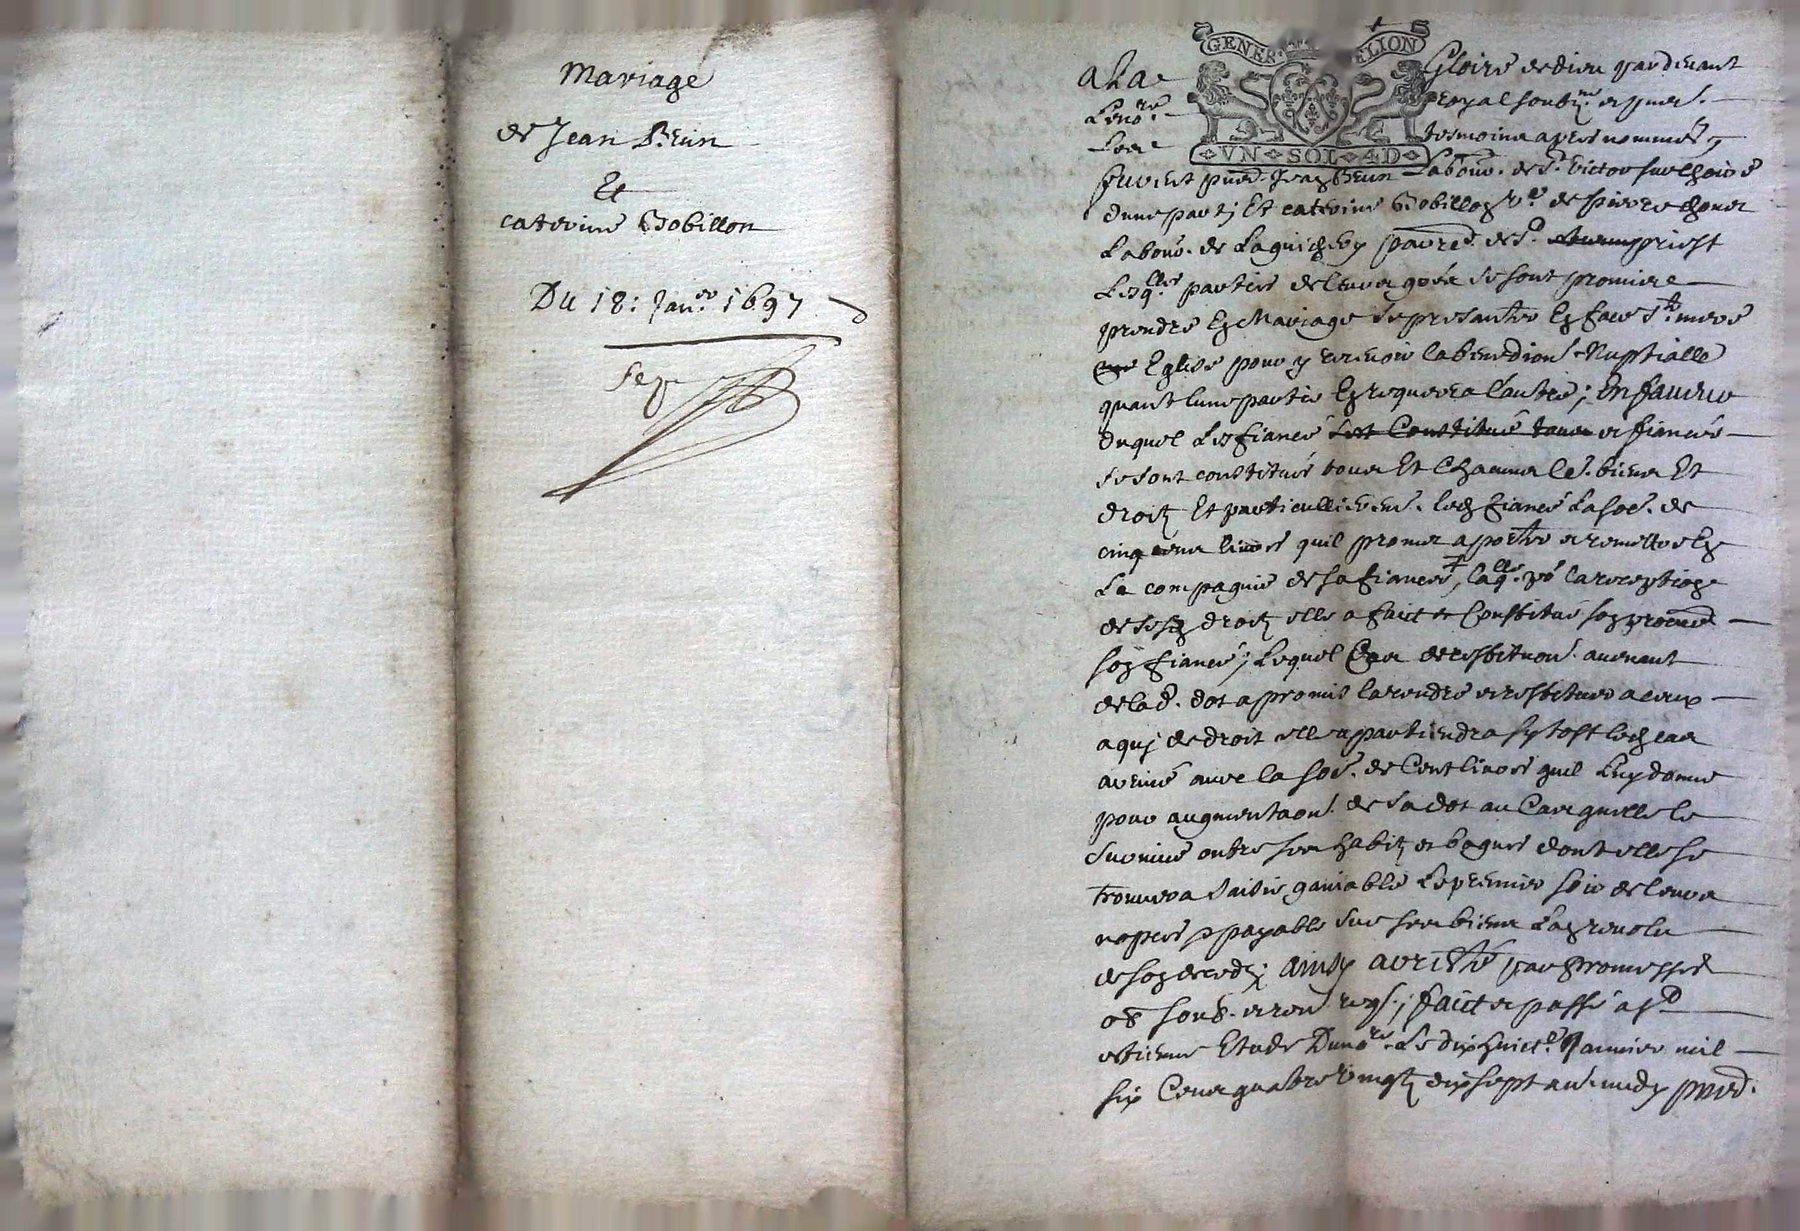 Mariage
de Jean Brun
Et
caterine Bobillon
Du 18: Janer 1697
GENER. ELION
VN SOL 4D
a La Gloire de dieu pardevant
Le nore royal soubzne et pnts.
Les tesmoins apres nommés
furent pnts. Jean Brun Labour. de St. Victor sur
dune part; Et caterine Bobillon ve. de pierre
Labour. de parre. de St. priest
Lesqlles parties de leurs grés se sont promis
prendre En Mariage se presanter En face Ste. mere
Eglise pour y recevoir la benediction Nuptialle
quant lune partie En requerra l'autre; En faveur
duquel Les fiancé Constitué tous et fiancée
se sont constitués tous Et Chacuns les. biens Et
droitz Et particullierement. led fiancé La soe. de
cinq livres quil promet aporter et remettre En
La compagnie de sa fiancée, laqlle. pr la reception
de sesd droitz elle a faict et Constitué son procur
son fiancé; Lequel Cas de restitution. avenant
de lad. dot a promis la rendre et restituer a ceux
a quj de droit elle apartiendra sytost led cas
avenu avec la soe. de Cent livres quil Luy donne
pour augmentaon. de sa dot au Cas quelle le
survive outre ses habitz et bagues dont elle se
trouvera saisie ganiable Le premier soir de leurs
nopces payable sur ses biens Lan revolu
de son decedz; ainsy arresté par promesses
obe soub. et ren ; faict et passé a St
estienne Etude Dunore. Le dix huicte. Janvier mil
six Cens quatre vingtz dix sept avt. midy pnts.